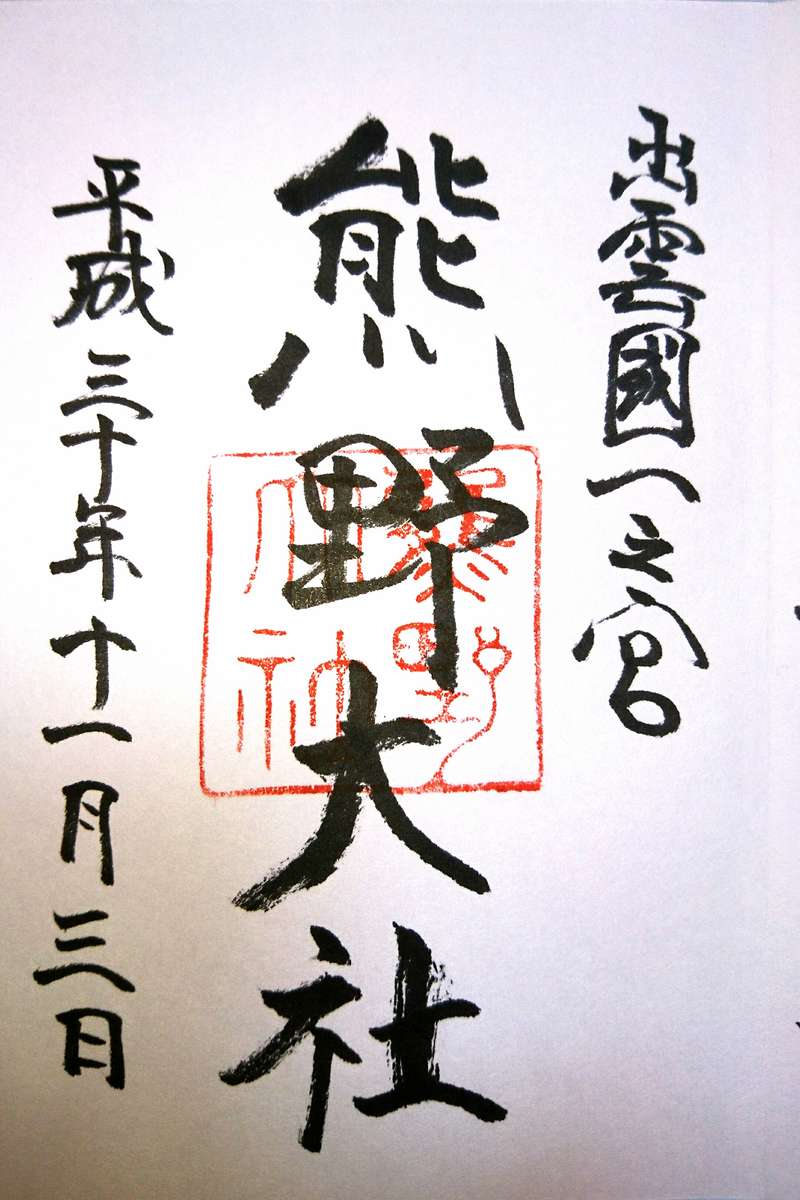 出雲國一之宮
熊野大社
熊野大社
平成三十年十一月三日